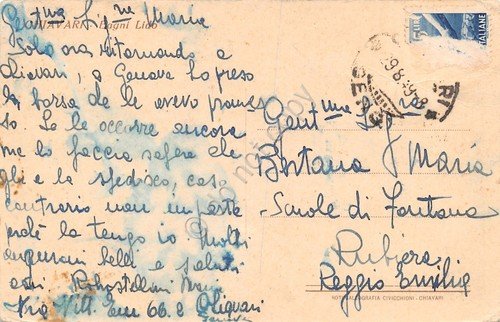 CHIAVARI - Bagni Lido
Gent.ma Sig.na Maria
Solo ora ritornando a
Chiavari, a Genova ho preso
la borsa che le avevo promes
so. Se le occorre ancora
me lo faccia sapere che
gliela spedisco, caso
contrario non importa
perchè la tengo io. Molti
auguroni belli e saluti
cari.
Via Vitt. Em. 66.8 Chiavari
Genova
5 LIRE
ITALIANE
Gent.ma Sig.na
Bertana Maria
Scuole di Fontana
Rubiera
Reggio Emilia
NOTOCALCOGRAFIA CIVICCHIONI - CHIAVARI